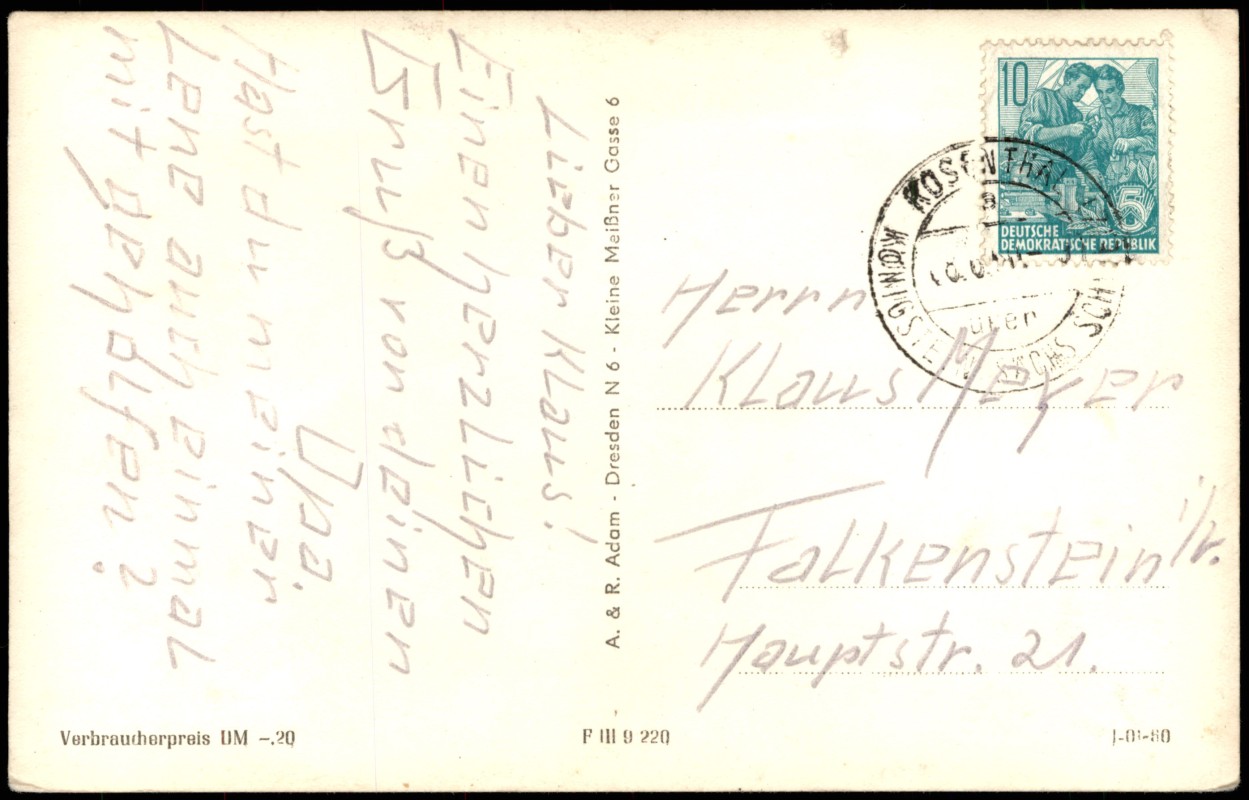 Lieber Klaus!
Einen herzlichen
Gruß von deinen
Opa.
Hast du meiner
Lene auch einmal
mit geholfen?
A. & R. Adam - Dresden N 6 - Kleine Meißner Gasse 6
10
5
DEUTSCHE
DEMOKRATISCHE REPUBLIK
ROSENTHAL
über
KÖNIGSTEIN SÄCHS SCH
Herrn
Klaus Meyer
Falkenstein i/V.
Hauptstr. 21.
Verbraucherpreis DM -.20
F III 9 220